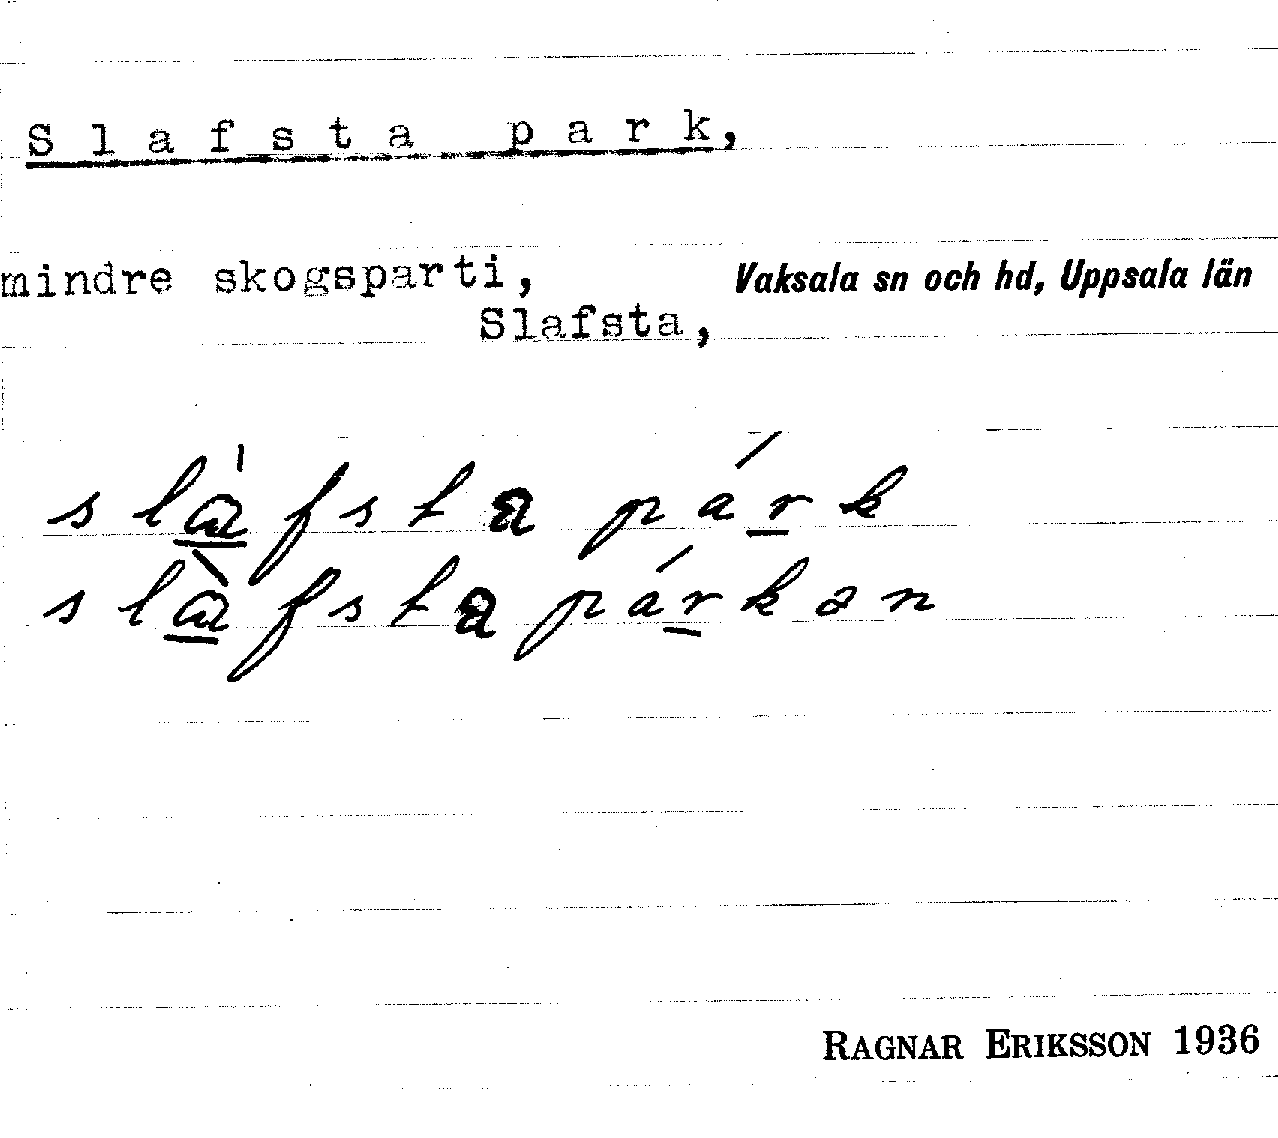 Slafsta park,
mindre skogsparti, Vaksala sn och hd, Uppsala län
Slafsta,
slàfsta párk
slàfstapárkan
RAGNAR ERIKSSON 1936